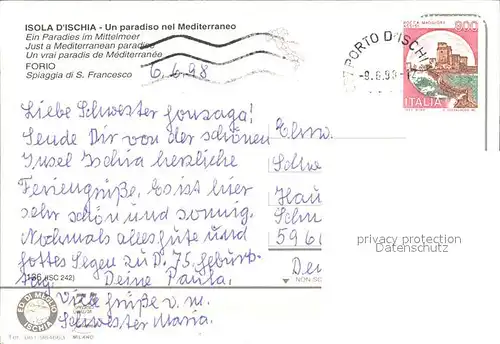 ISOLA D'ISCHIA - Un paradiso nel Mediterraneo
Ein Paradies im Mittelmeer
Just a Mediterranean paradise
Un vrai paradis de Méditerranée
FORIO
Spiaggia di S. Francesco
6.6.98
PORTO D'ISCHI
800
ITALIA
Liebe Schwester Gonzaga!
Sende Dir von der schönen
Insel Ischia herzliche
Feriengrüße. Es ist hier
sehr schön und sonnig.
Nochmals alles gute und
Gottes Segen zu D. 75. Geburts-
tag. Deine Paula.
Viele Grüße v. m.
Schwester Maria.
Ehrw.
Schwe
Hau
Schm
596
De
privacy protection
Datenschutz
136 (ISC 242)
NON SC
ED. DI MEGLIO
ISCHIA
MILANO